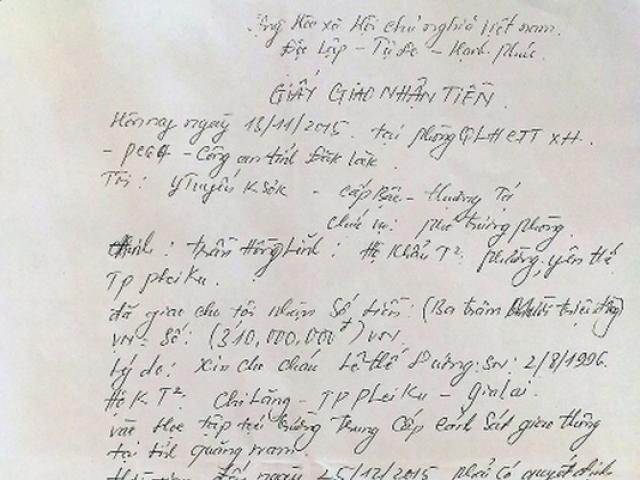 Hòa xã Hội chủ nghĩa Việt nam.
Độc Lập - Tự do - Hạnh phúc.
GIẤY GIAO NHẬN TIỀN.
Hôm nay ngày 18/11/2015. tại phòng QLHCTTXH.
- PC64 - Công an tỉnh Đăk Lăk.
Tôi: Y Tuyến Ksơk - cấp Bậc - thượng Tá
chức vụ: phó trưởng phòng.
Anh: Trần Hồng Lĩnh: Hộ Khẩu T²: phường, yên thế
TP pleiKu.
đã giao cho tôi nhận Số tiền: (Ba trăm triệu đồng)
VN - Số: (310,000,000đ) VN.
Lý do: Xin cho cháu Lê thế Dương: SN: 2/8/1996.
Hộ K T²: Chi Lăng - TP pleiKu - gialai.
vào Học tập tại trường Trung Cấp cảnh Sát giao thông
tại tỉnh quảng nam.
đến ngày 25/12/2015 phải có quyết định